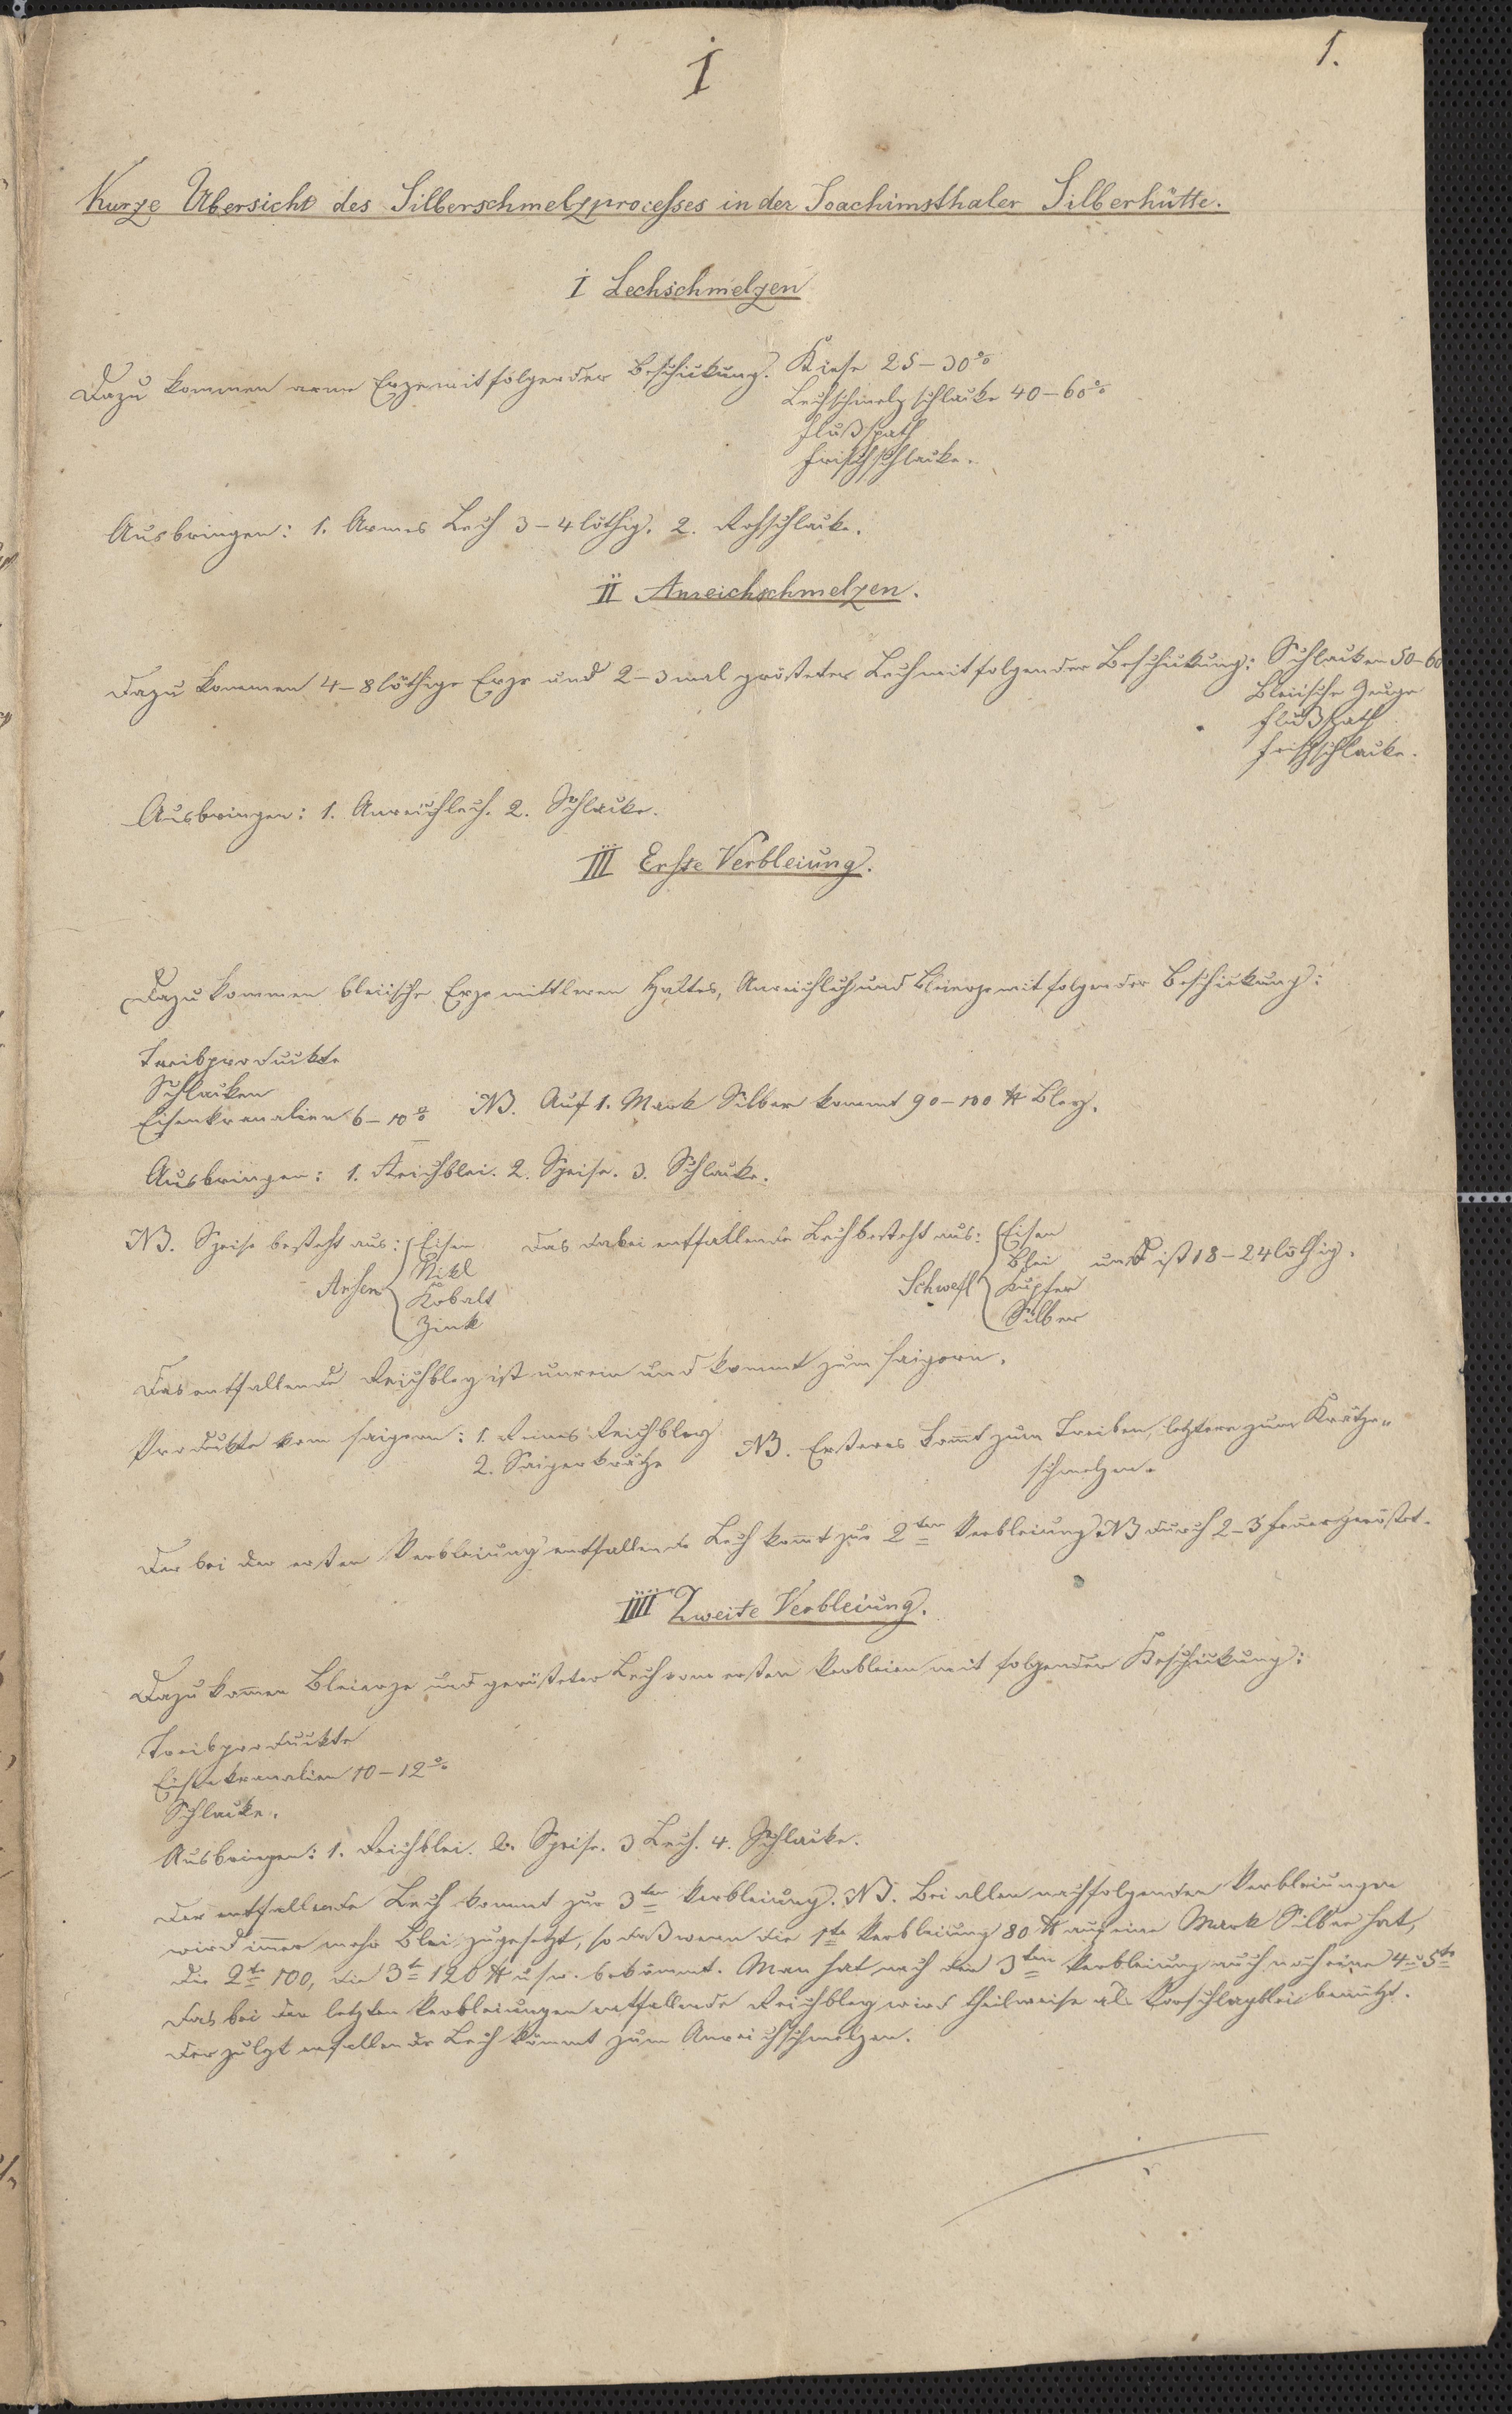 I
1.
Kurze Übersicht des Silberschmelzprocesses in der Joachimsthaler Silberhütte.
I Lechschmelzen
Dazu kommen arme Erze mit folgender Beschickung. Kiese 25–30%
Lechschmelzschlacke 40–60%
Flußspath
Frischschlacke.
Ausbringen: 1. Armes Lech 3–4 löthig. 2. Rohschlacke.
II Anreichschmelzen.
Dazu kommen 4–8 löthige Erze und 2–3 mal gerösteter Lech mit folgender Beschickung: Schlacken 50–60
Bleiische Zeuge
Flußspath
Frischschlacke.
Ausbringen: 1. Anreichlech. 2. Schlacke.
III Erste Verbleiung.
Dazu kommen bleiische Erze mittleren Haltes, Anreichlech und Bleierze mit folgender Beschickung:
Treibprodukte
Schlacken
Eisenkranalien 6–10% NB. Auf 1. Mark Silber kommt 90–100 ℔ Bley.
Ausbringen: 1. Reichblei. 2. Speise. 3. Schlacke.
NB. Speise besteht aus: Eisen Das dabei entfallende Lech besteht aus: Eisen
Arsen Nikl Schwefl Blei und ist 18–24 löthig.
Kobalt Kupfer
Zink Silber
Das entfallende Reichbley ist unrein und kommt zum saigern.
Produkte vom saigern: 1. Reines Reichbley NB. Ersteres kom̅t zum Treiben, letztere zum Krätze„
2. Saigerkrätze schmelzen.
Der bei der ersten Verbleiung entfallende Lech kom̅t zur 2ten Verbleiung NB durch 2–3 Feuer geröstet.
IIII Zweite Verbleiung.
Dazu kom̅en Bleierze und gerösteter Lech vom ersten Verbleien mit folgender Beschickung:
Treibprodukte
Eisenkranalien 10–12%
Schlacke.
Ausbringen: 1. Reichblei. 2. Speise. 3 Lech. 4. Schlacke.
Der entfallende Lech kommt zur 3ten Verbleiung. NB. Bei allen nachfolgenden Verbleiungen
wird im̅er mehr Blei zugesetzt, so daß wenn die 1te Verbleiung 80 ℔ auf eine Mark Silber hat,
die 2te 100, die 3te 120 ℔ u.s.w. bekömmt. Man hat nach der 3ten Verbleiung auch noch eine 4 u 5te
Das bei den letzten Verbleiungen entfallende Reichbley wird theilweise als Vorschlagblei benützt.
Der zulezt enfallende Lech kömmt zum Anreichschmelzen.